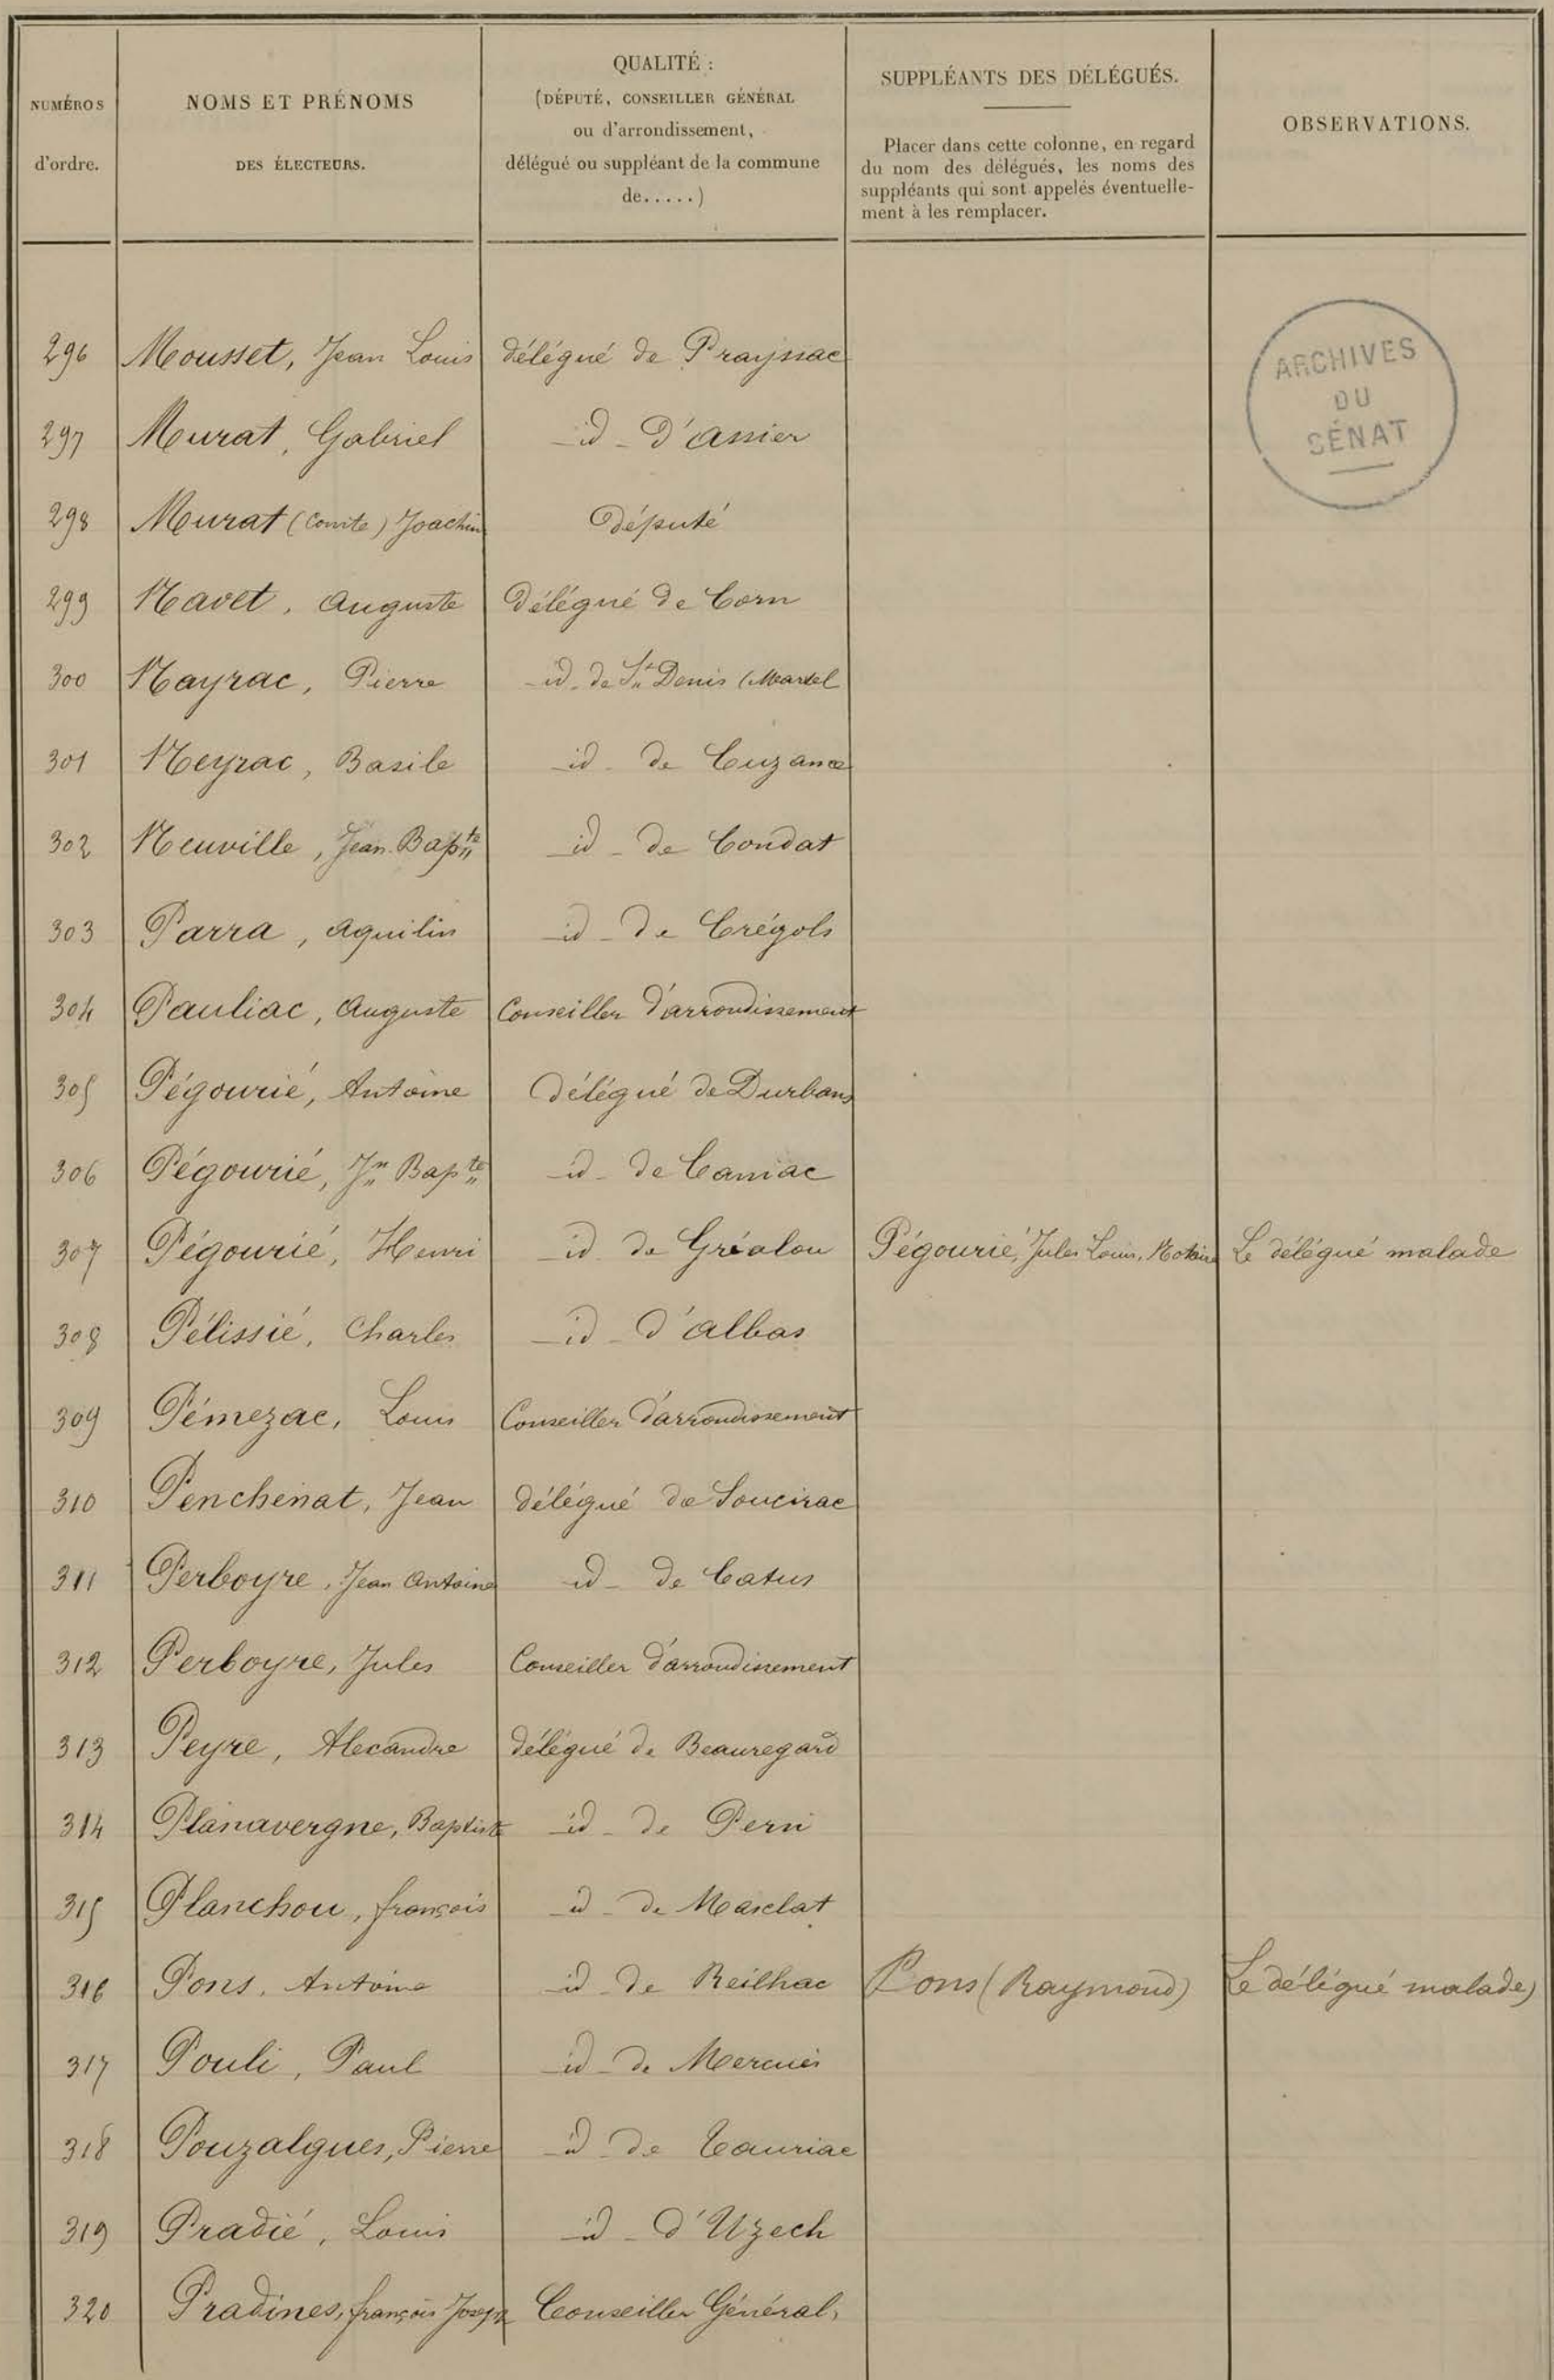 NUMÉROS
d'ordre.
NOMS ET PRÉNOMS
DES ÉLECTEURS.
QUALITÉ :
(DÉPUTÉ, CONSEILLER GÉNÉRAL
ou d'arrondissement,
délégué ou suppléant de la commune
de.....)
SUPPLÉANTS DES DÉLÉGUÉS.
Placer dans cette colonne, en regard
du nom des délégués, les noms des
suppléants qui sont appelés éventuelle-
ment à les remplacer.
OBSERVATIONS.
ARCHIVES
DU
SÉNAT
296 Mousset, Jean Louis délégué de Prayssac
297 Murat, Gabriel id d'Assier
298 Murat (Comte) Joachim Député
299 Navet, Auguste Délégué de Corn
300 Nayrac, Pierre id. de St Denis (Martel
301 Neyrac, Basile id. de Cuzance
302 Neuville, Jean Bapte id de Condat
303 Parra, Aquilin id de Crégols
304 Pauliac, Auguste Conseiller d'arrondissement
305 Pégourié, Antoine Délégué de Durbans
306 Pégourié, Jn Bapte id de Caniac
307 Pégourié, Henri id de Gréalou Pégourié, Jules Louis, Notaire Le délégué malade
308 Pélissié, Charles id d'albas
309 Pémezac, Louis Conseiller d'arrondissement
310 Penchenat, Jean délégué de Soucirac
311 Perboyre, Jean Antoine id de Catus
312 Perboyre, Jules Conseiller d'arrondissement
313 Peyre, Alexandre délégué de Beauregard
314 Planavergne, Baptiste id de Pern
315 Planchou, françois id de Masclat
316 Pons, Antoine id de Reilhac Pons (Raymond) Le délégué malade
317 Pouli, Paul id de Mercuès
318 Pouzalgues, Pierre id de Tauriac
319 Pradié, Louis id d'Uzech
320 Pradines, françois Joseph Conseiller Général,